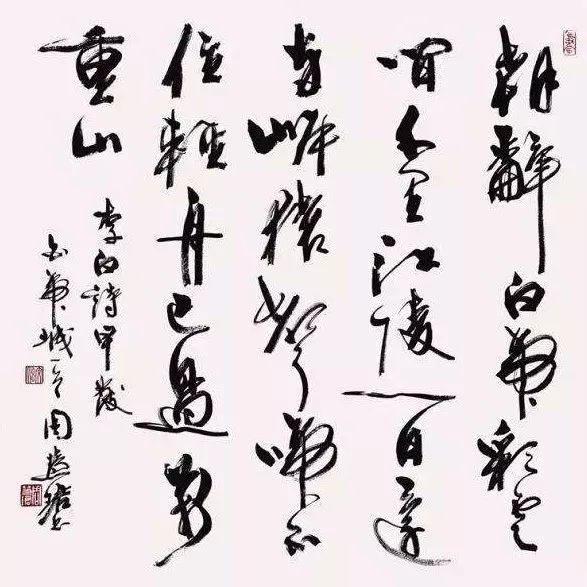 朝辭白帝彩雲
間千里江陵一日還
兩岸猿聲啼不
住輕舟已過萬
重山
李白詩早發
白帝城一首周慧珺